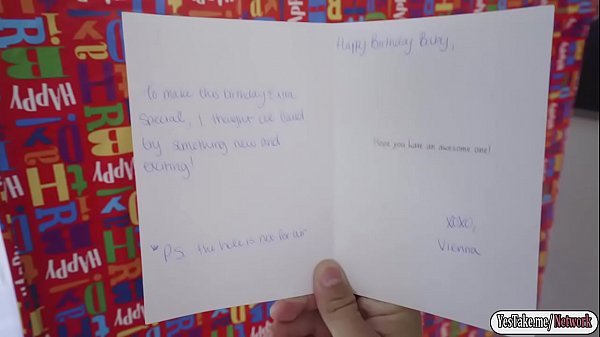 To make this birthday extra
special, I thought we could
try something new and
exciting!
*P.S. the hole is not for air
Happy Birthday Baby,
Hope you have an awesome one!
XOXO,
Vienna
HAPPY
HAPPY
HAPPY
HAPPY
YesTake.me/ Network